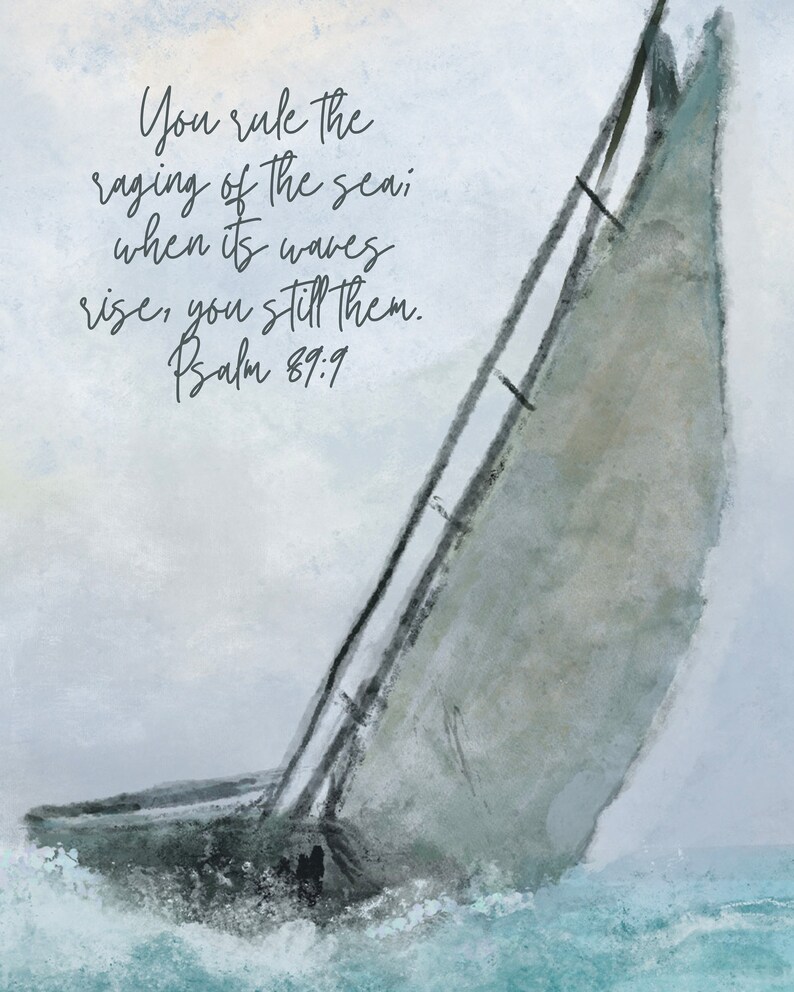 You rule the
raging of the sea;
when its waves
rise, you still them.
Psalm 89:9